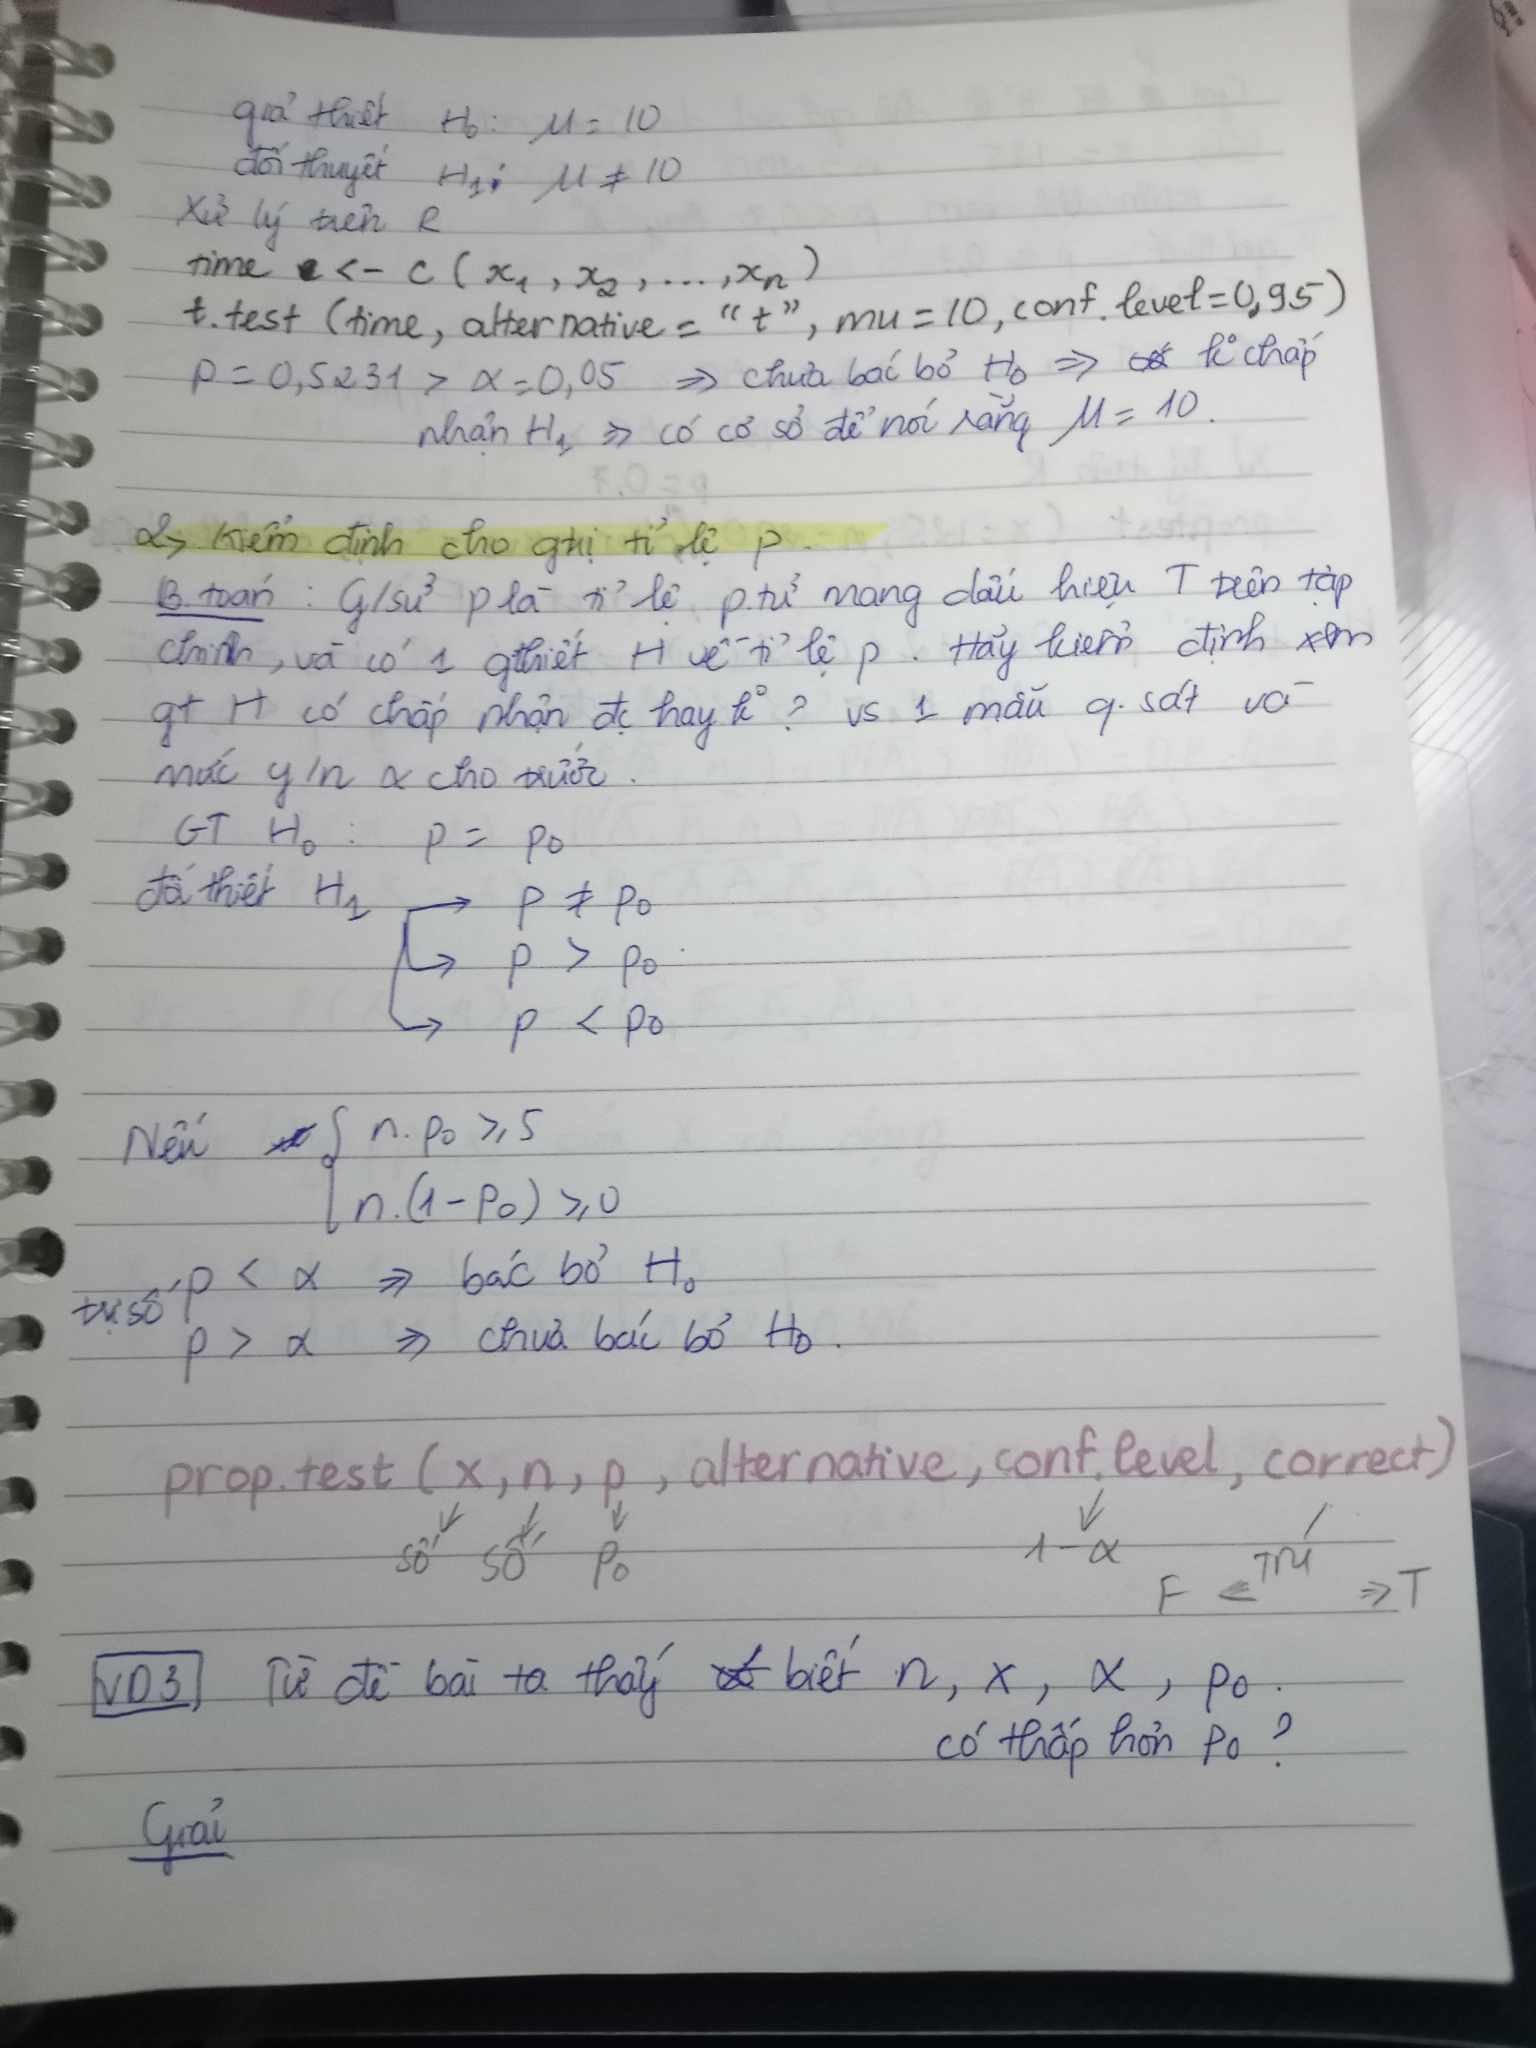 giả thiết H₀: μ = 10
đối thuyết H₁: μ ≠ 10
Xử lý trên R
time <- c (x₁, x₂, ..., xₙ)
t.test (time, alternative = "t", mu = 10, conf.level = 0,95)
p = 0,5231 > α = 0,05 => chưa bác bỏ H₀ => k° chấp
nhận H₁ => có cơ sở để nói rằng μ = 10.
2> Kiểm định cho gtrị tỉ lệ p.
B.toán: G/sử p là tỉ lệ p.tử mang dấu hiệu T trên tập
chính, và có 1 gthiết H về tỉ lệ p. Hãy kiểm định xem
gt H có chấp nhận đc hay k°? vs 1 mẫu q.sát và
mức y/n α cho trước.
GT H₀: p = p₀
đối thiết H₁ → p ≠ p₀
→ p > p₀
→ p < p₀
Nếu { n.p₀ ≥ 5
n.(1-p₀) ≥ 0
trị số p < α => bác bỏ H₀
p > α => chưa bác bỏ H₀.
prop.test (x, n, p, alternative, conf.level, correct)
số số p₀ 1-α
F <= => T
VD3 Từ đề bài ta thấy biết n, x, α, p₀.
có thấp hơn p₀?
Giải